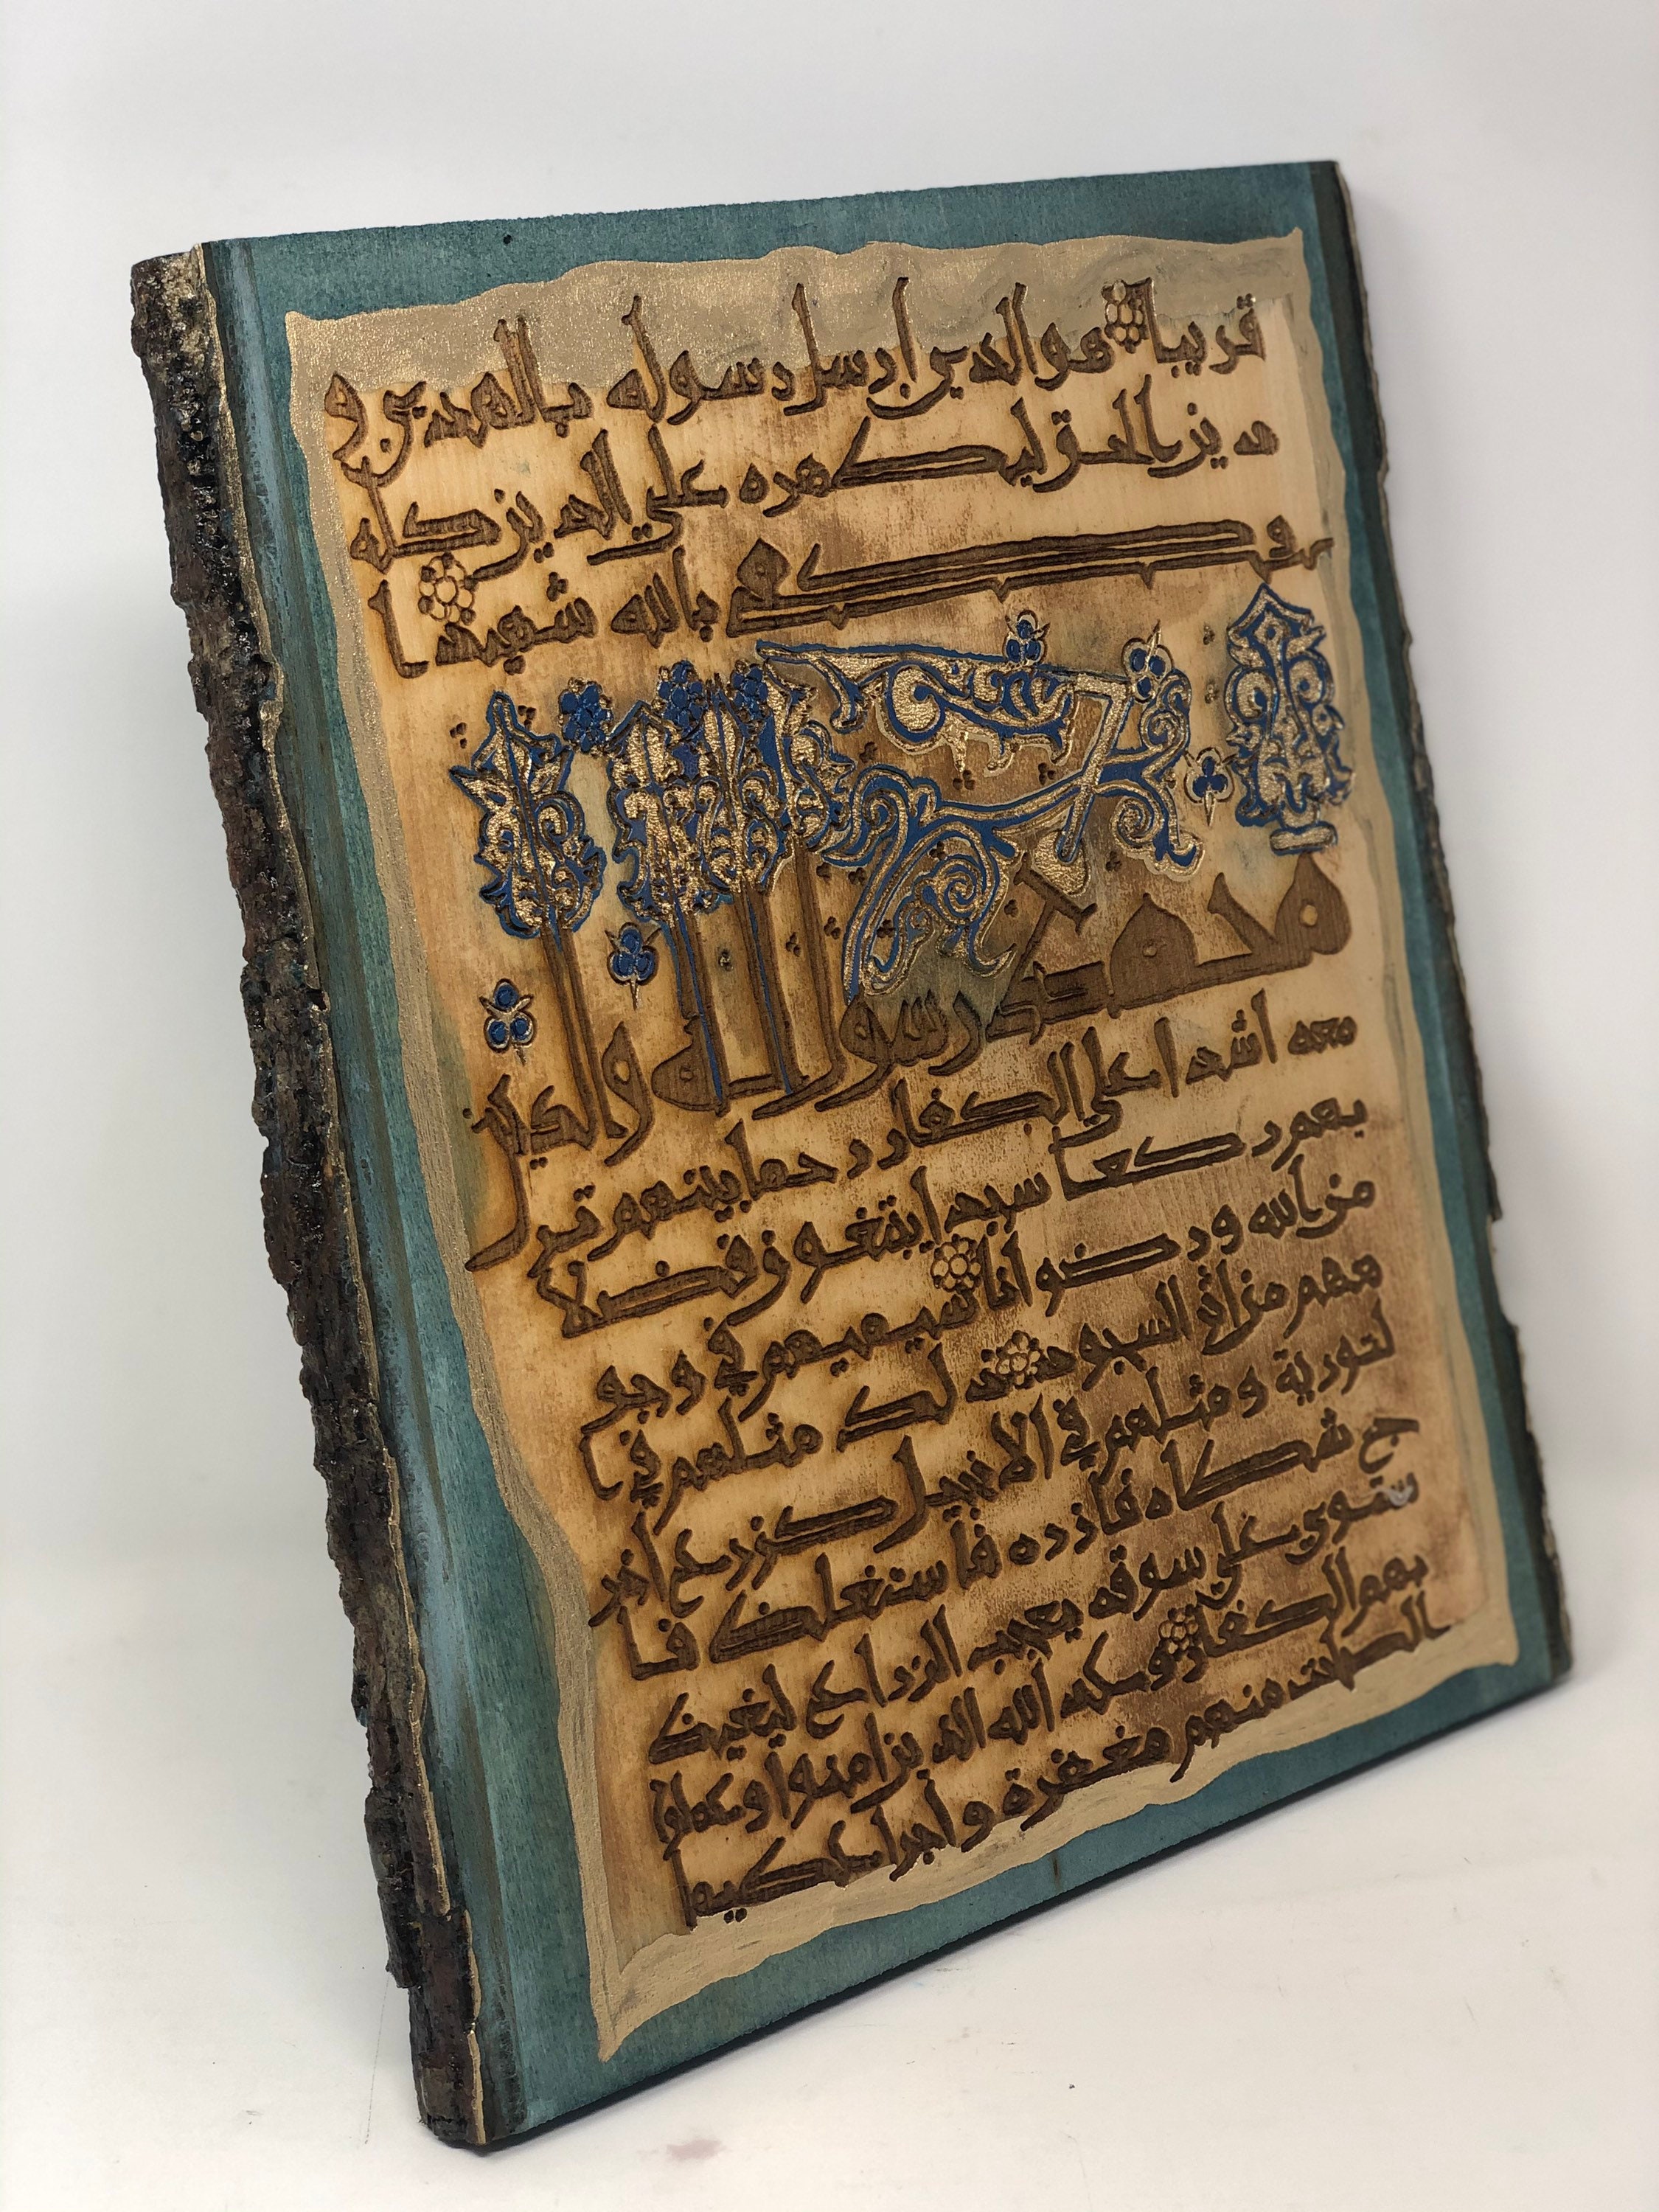 قريبا هو الذي ارسل رسوله بالهدى و
دين الحق ليظهره على الدين كله
وكفى بالله شهيدا
محمد رسول الله والذين
معه اشدا على الكفار رحما بينهم تر
يهم ركعا سجدا يبتغون فضلا
من الله ورضوانا سيميهم في وجو
ههم من اثر السجود ذلك مثلهم في ا
لتورية ومثلهم في الانجيل كزرع اخر
ج شطاه فازره فاستغلظ فا
ستوي على سوقه يعجب الزراع ليغيظ
بهم الكفار وعد الله الذين امنوا وعملوا
الصلحت منهم مغفرة واجرا عظيما